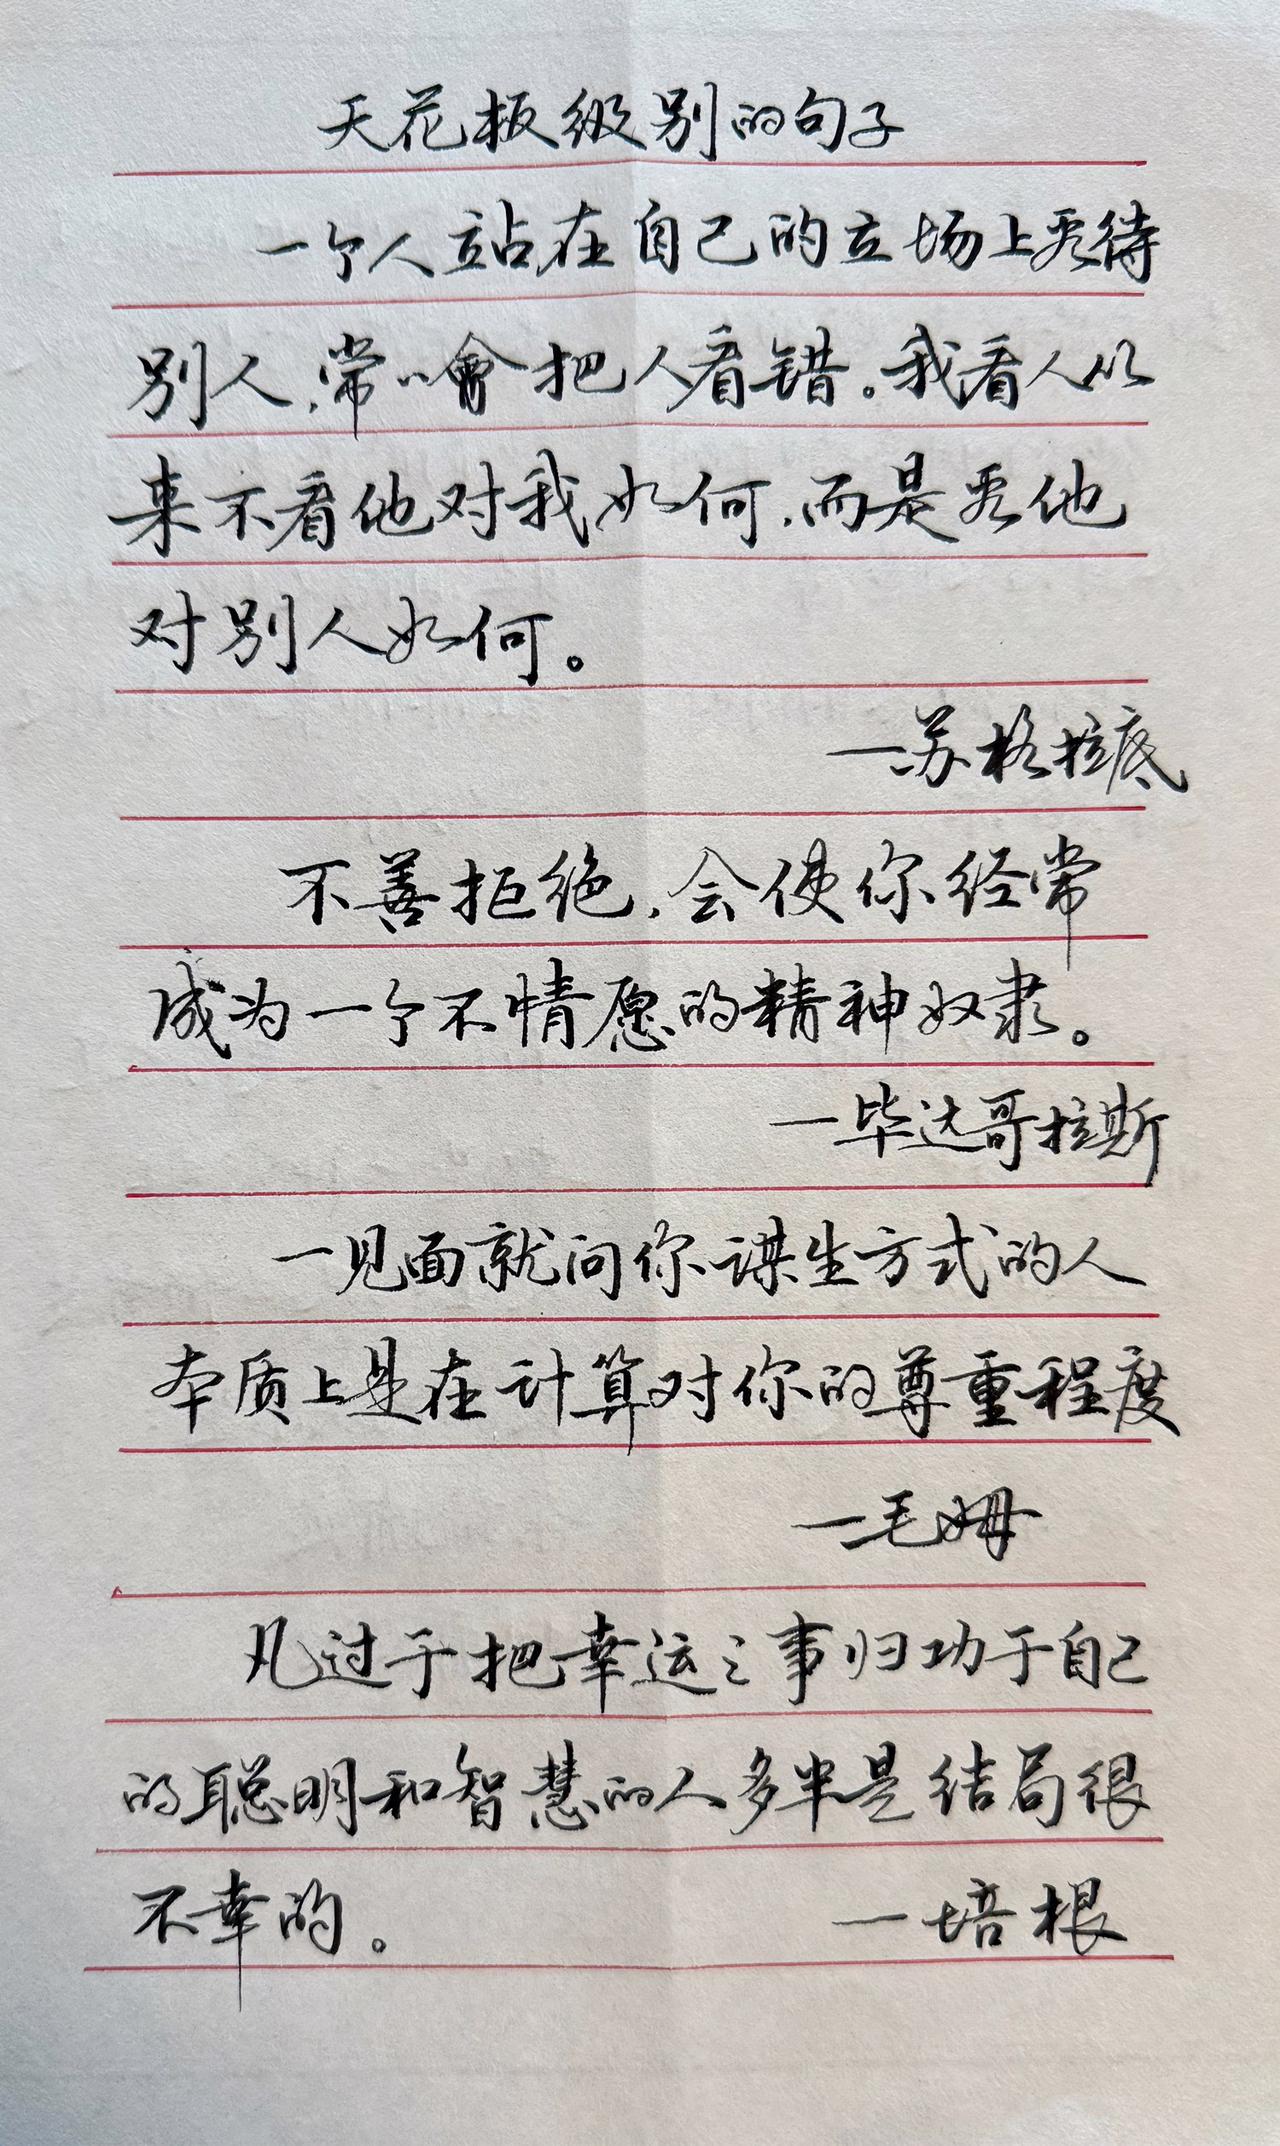 天花板级别的句子
一个人站在自己的立场上看待
别人，常常會把人看错。我看人从
来不看他对我如何，而是看他
对别人如何。
—苏格拉底
不善拒绝，会使你经常
成为一个不情愿的精神奴隶。
—毕达哥拉斯
一见面就问你谋生方式的人
本质上是在计算对你的尊重程度
—毛姆
凡过于把幸运之事归功于自己
的聪明和智慧的人多半是结局很
不幸的。 —培根